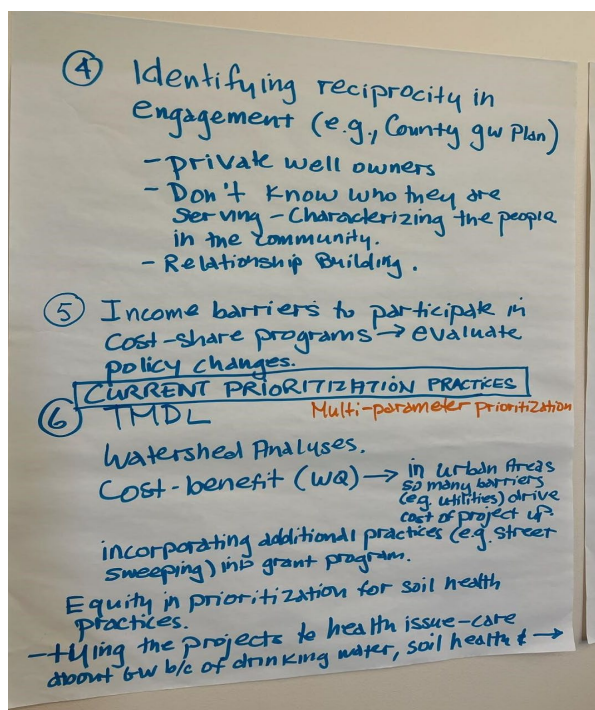 ④ Identifying reciprocity in
engagement (e.g., County gw Plan)
- private well owners
- Don't know who they are
serving - Characterizing the people
in the community.
- Relationship Building.
⑤ Income barriers to participate in
cost-share programs → evaluate
policy changes.
CURRENT PRIORITIZATION PRACTICES
⑥ TMDL
Multi-parameter prioritization
Watershed Analyses.
Cost-benefit (WQ) → in urban Areas
so many barriers
(e.g. utilities) drive
cost of project up.
incorporating additional practices (e.g. street
sweeping) into grant program.
Equity in prioritization for soil health
practices.
- tying the projects to health issue-care
about GW b/c of drinking water, soil health & →